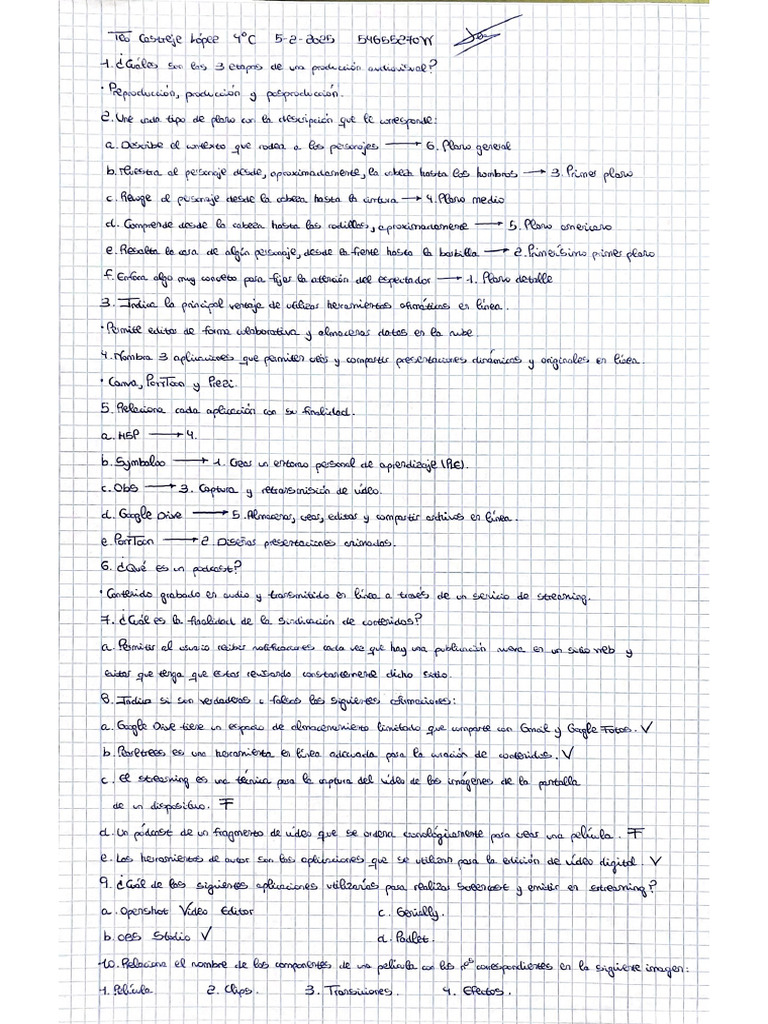 Teo Castreje López 4ºC 5-2-2025 54655270W
1. ¿Cuáles son las 3 etapas de una producción audiovisual?
· Preproducción, producción y posproducción.
2. Une cada tipo de plano con la descripción que le corresponde:
a. Describe el contexto que rodea a los personajes → 6. Plano general
b. Muestra al personaje desde, aproximadamente, la cabeza hasta los hombros → 3. Primer plano
c. Recoge al personaje desde la cabeza hasta la cintura → 4. Plano medio
d. Comprende desde la cabeza hasta las rodillas, aproximadamente → 5. Plano americano
e. Resalta la cara de algún personaje, desde la frente hasta la barbilla → 2. Primerísimo primer plano
f. Enfoca algo muy concreto para fijar la atención del espectador → 1. Plano detalle
3. Indica la principal ventaja de utilizar herramientas ofimáticas en línea.
· Permite editar de forma colaborativa y almacenar datos en la nube.
4. Nombra 3 aplicaciones que permiten crear y compartir presentaciones dinámicas y originales en línea.
· Canva, PowToon y Prezi.
5. Relaciona cada aplicación con su finalidad.
a. H5P → 4.
b. Symbaloo → 1. Crear un entorno personal de aprendizaje (PLE).
c. Obs → 3. Captura y retransmisión de vídeo.
d. Google Drive → 5. Almacenar, crear, editar y compartir archivos en línea.
e. PowToon → 2. Diseñar presentaciones animadas.
6. ¿Qué es un podcast?
· Contenido grabado en audio y transmitido en línea a través de un servicio de streaming.
7. ¿Cuál es la finalidad de la sindicación de contenidos?
a. Permitir al usuario recibir notificaciones cada vez que hay una publicación nueva en un sitio web y
evitar que tenga que estar revisando constantemente dicho sitio.
8. Indica si son verdaderas o falsas las siguientes afirmaciones:
a. Google Drive tiene un espacio de almacenamiento limitado que comparte con Gmail y Google Fotos. V
b. Pearltrees es una herramienta en línea adecuada para la curación de contenidos. V
c. El streaming es una técnica para la captura del vídeo de las imágenes de la pantalla
de un dispositivo. F
d. Un pódcast de un fragmento de vídeo que se ordena cronológicamente para crear una película. F
e. Las herramientas de autor son las aplicaciones que se utilizan para la edición de vídeo digital. V
9. ¿Cuál de las siguientes aplicaciones utilizarías para realizar screencast y emitir en streaming?
a. Openshot Video Editor c. Genially.
b. OBS Studio V d. Padlet.
10. Relaciona el nombre de los componentes de una película con los nºs correspondientes en la siguiente imagen:
1. Película. 2. Clips. 3. Transiciones. 4. Efectos.